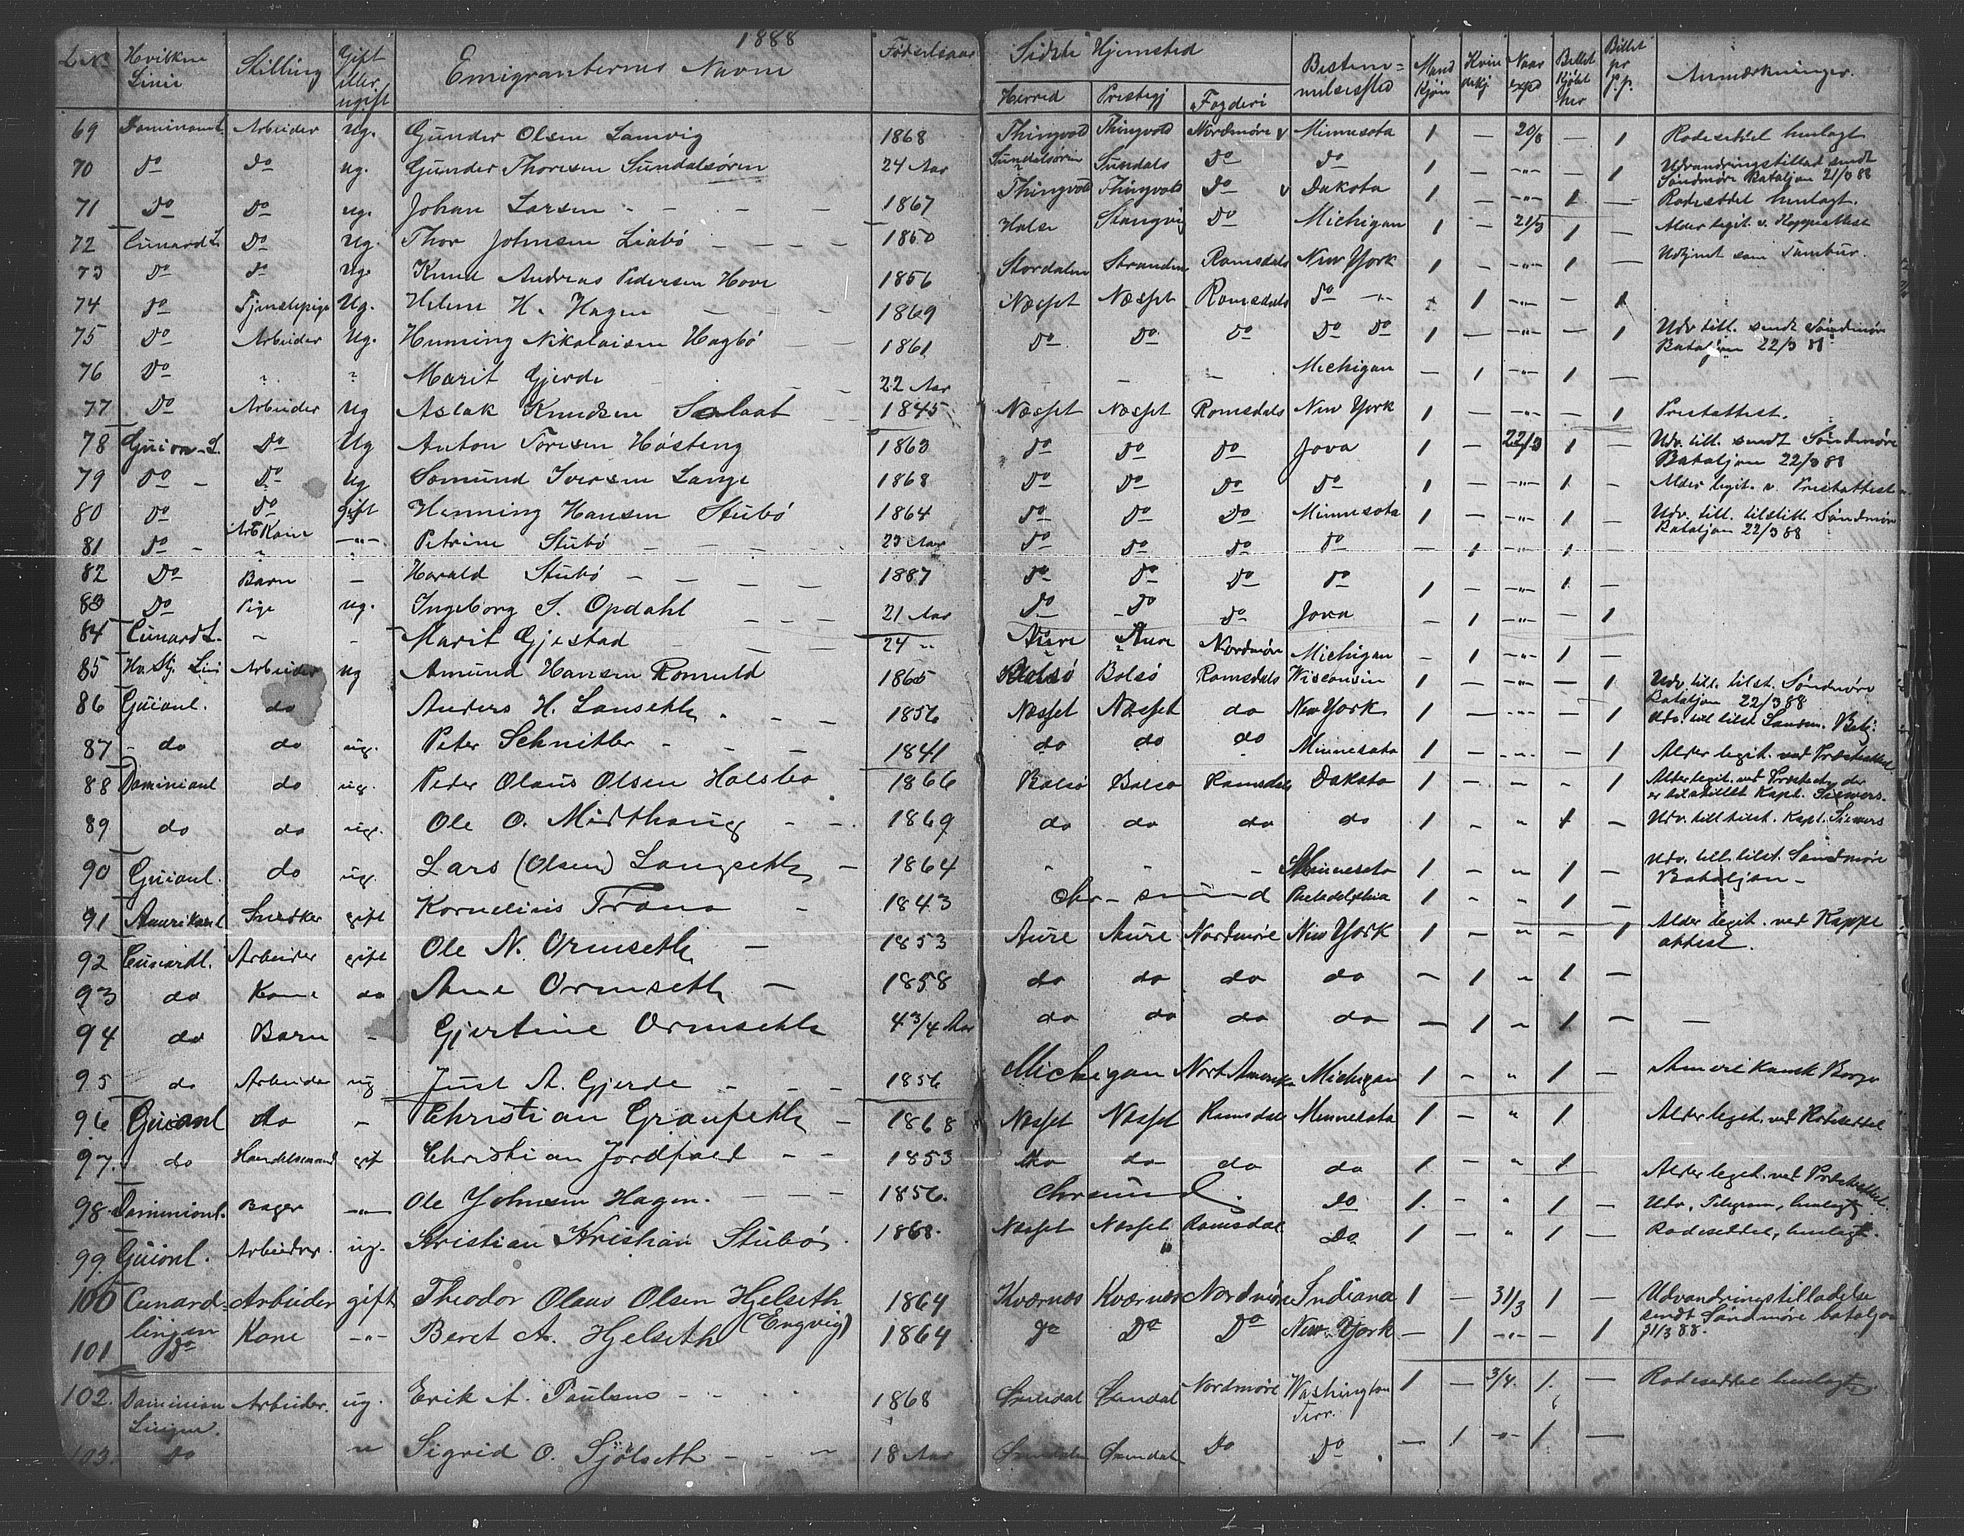 1888
L. No Hvilken Linie Stilling Gift eller ugift Emigranternes Navn Fødselsaar Sidste Hjemsted Herred Prestegj Fogderi Bestemmelsessted Mand Kjøn Kvindekj Naar exp Billet Kjøbt her Billet pr P.P. Anmærkninger.
69 Dominionl. Arbeider Ug. Gunder Olsen Lamvig 1868 Thingvold Thingvold Nordmøre v Minnesota 1 — 20/3 — 1 Rodeseddel henlagt
70 Do Do ug. Gunder Thoresen Sundalsøren 24 Aar Sundalsøren Sundals Do Do 1 — -"- — 1 Udvandringstillad sendt Søndmøre Bataljon 21/3 88
71 Do Do ug. Johan Larsen 1867 Thingvold Thingvold Do v Dakota 1 — -"- 1 — Rodeseddel henlagt.
72 Cunard L. Do Ug. Thor Johnsen Liabø 1860 Halse Stangvig Do Michigan 1 — 21/3 1 — Alder legit. v. Koppeattest
73 Do Do Ug. Knud Andreas Pedersen Hove 1856 Stordalen Stranden Romsdals New York 1 — -"- 1 — Udtjent som Tambur.
74 Do Tjenestepige Ug. Helene H. Hagen 1869 Nesset Nesset Romsdals Do -"- 1 -"- — 1
75 Do Arbeider Ug. Henning Nikolaisen Hagbø 1861 Do Do Do Do Do 1 — -"- — 1 Udv till. sendt Søndmøre Bataljon 22/3 88
76 Do Marit Gjerde 22 Aar Michigan — 1 -"- 1 —
77 Do Arbeider Ug Aslak Knudsen 1845 Nesset Nesset Romsdals New York 1 — -"- — 1 Prestattest.
78 Guion-L. Do Ug Anton Toresen Høsteng 1863 Do Do Do Jova 1 — 22/3 1 — Udv. till. sendt Søndmøre Bataljon 22/3 88
79 Do Do Ug Somund Iversen Lange 1868 Do Do Do Do 1 — -"- 1 — Alder legit. v. Prestattest
80 Do Do gift Henning Hansen Stubø 1864 Do Do Do Minnesota 1 — -"- 1 — Udv. till. tilstill. Søndmør Bataljon 22/3 88
81 Do Arb Kone -"- Petrine Stubø 23 Aar Do Do Do Do — 1 -"- 1 —
82 Do Barn — Harald Stubø 1887 Do Do Do Do 1 — -"- 1 —
83 Do Pige ug. Ingeborg S. Opdahl 21 Aar Do Do Do Jova — 1 -"- — 1
84 Cunard L. Marit Gjestad 24 " Aure Aure Nordmøre Michigan — 1 -"- 1 —
85 Hv. Stj. Lini Arbeider ug Amund Hansen Romuld 1865 Bolsø Bolsø Romsdals Wisconsin 1 — -"- — 1 Udv. till. tilst. Søndmøre Bataljon 22/3 88
86 Guionl. do Anders H. Lansethe 1856 Nesset Nesset do New York 1 — -"- — 1 Udv. till tilst Søndm. Bat.
87 do do ug. Peter Schnitler 1841 do do do Minnesota 1 — -"- — 1 Alder legit. ved Præsteattest
88 Dominionl do ug. Peder Olaus Olsen Holsbø 1866 Bolsø Bolsø Romsdals Dakota 1 — — 1 Alder legit. ved Kapt. Sievers.
89 do do ug. Ole O. Midthaug 1869 do do do do 1 - " 1 — Udv. till tilst. Kapt. Sievers
90 Guionl. do ug. Lars (Olsen) Langseth 1864 " " " Minnesota 1 — " 1 — Udv. till. tilst. Søndmøre Bataljon
91 Amerikanl Snedker gift Kornelius Trana 1843 Chr-sund Philadelphia 1 - " 1 —
92 Cunardl. Arbeider gift Ole N. Ormseth 1853 Aure Aure Nordmøre New York 1 - " - 1 Alder legit. ved Koppe attest.
93 do Kone do Ane Ormseth 1858 do do do do — 1 " 1 —
94 do Barn - Gjertine Ormseth 4 3/4 Aar do do do do — 1 " 1 — —
95 do Arbeider ug Just A. Gjerde 1856 Michigan Nort Amerika Michigan 1 - " 1 — Amerikansk Borge
96 Guionl do - Christian Graupseth 1868 Nesset Nesset Romsdal Minnesota 1 — " 1 Alder legit. ved Rodeseddel
97. do Handelsmand gift Christian Jordfald 1853 do do do do 1 — " 1 Alder legit. ved Præsteattest
98 Dominionl. Bager -"- Ole Johnsen Hagen. 1856. Chrsund. do 1. " 1 — Udv. Telegram, henlagt
99. Guionl. Arbeider. ug. Kristian Kristian Stubø. 1868. Nesset Nesset Romsdal Do 1 — " 1 — Rodeseddel, henlagt.
100 Cunard-linjen Arbeider gift Theodor Olaus Olsen Hjelseth (Engvig) 1864 Kværnes Kværnes Nordmøre Indiana 1 — 31/3 1 — Udvandringstilladelse sendt Søndmøre bataljon 31/3 88.
101 Do Kone -"- Beret A. Hjelseth 1864 Do Do Do New York — 1 -"- — 1
102. Dominion Linjen. Arbeider. ug. Erik A. Paulsen 1868 Sundal Sundal Nordmøre Washington Terr. 1 — 3/4. 1. — Rodeseddel henlagt.
103. Do " Sigrid O. Sjölseth 18 Aar Sundalen Sundal Do Do — 1 -"- 1. —